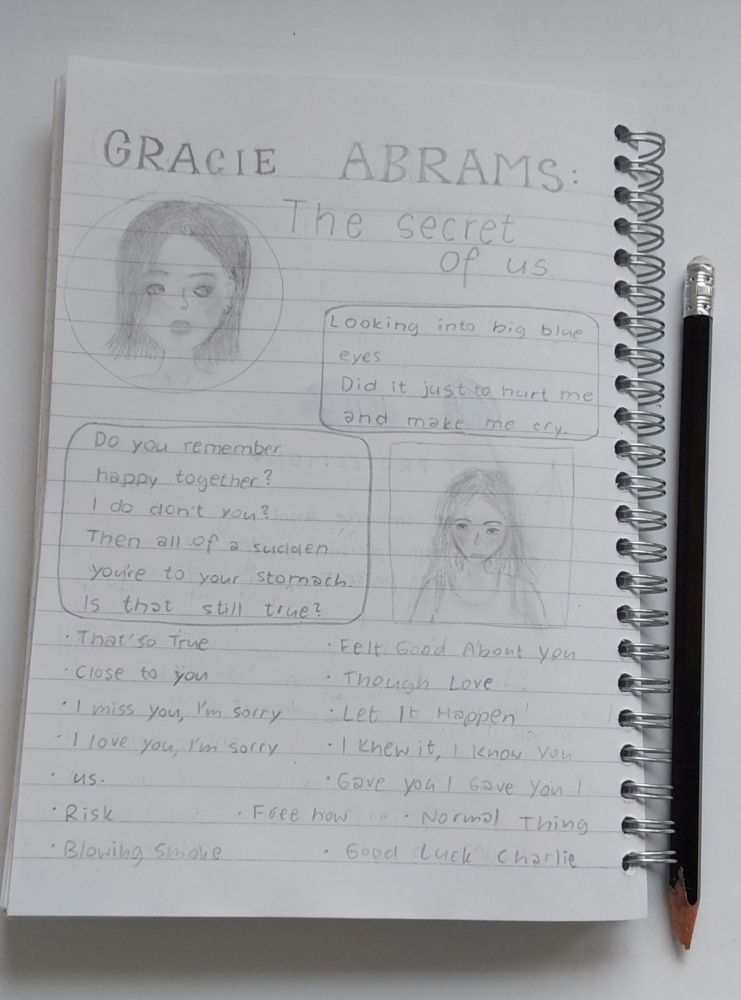 GRACIE ABRAMS:
The secret
of us
Looking into big blue
eyes
Did it just to hurt me
and make me cry.
Do you remember
happy together?
I do don't you?
Then all of a sudden
you're to your stomach.
Is that still true?
· That'so True
· Felt Good About you
· Close to you
· Though Love
· I miss you, I'm sorry
· Let It Happen
· I love you, I'm sorry
· I knew it, I know you
· us.
· Gave you I Gave you I
· Risk · Free now · Normal Thing
· Blowing Smoke · Good Luck Charlie